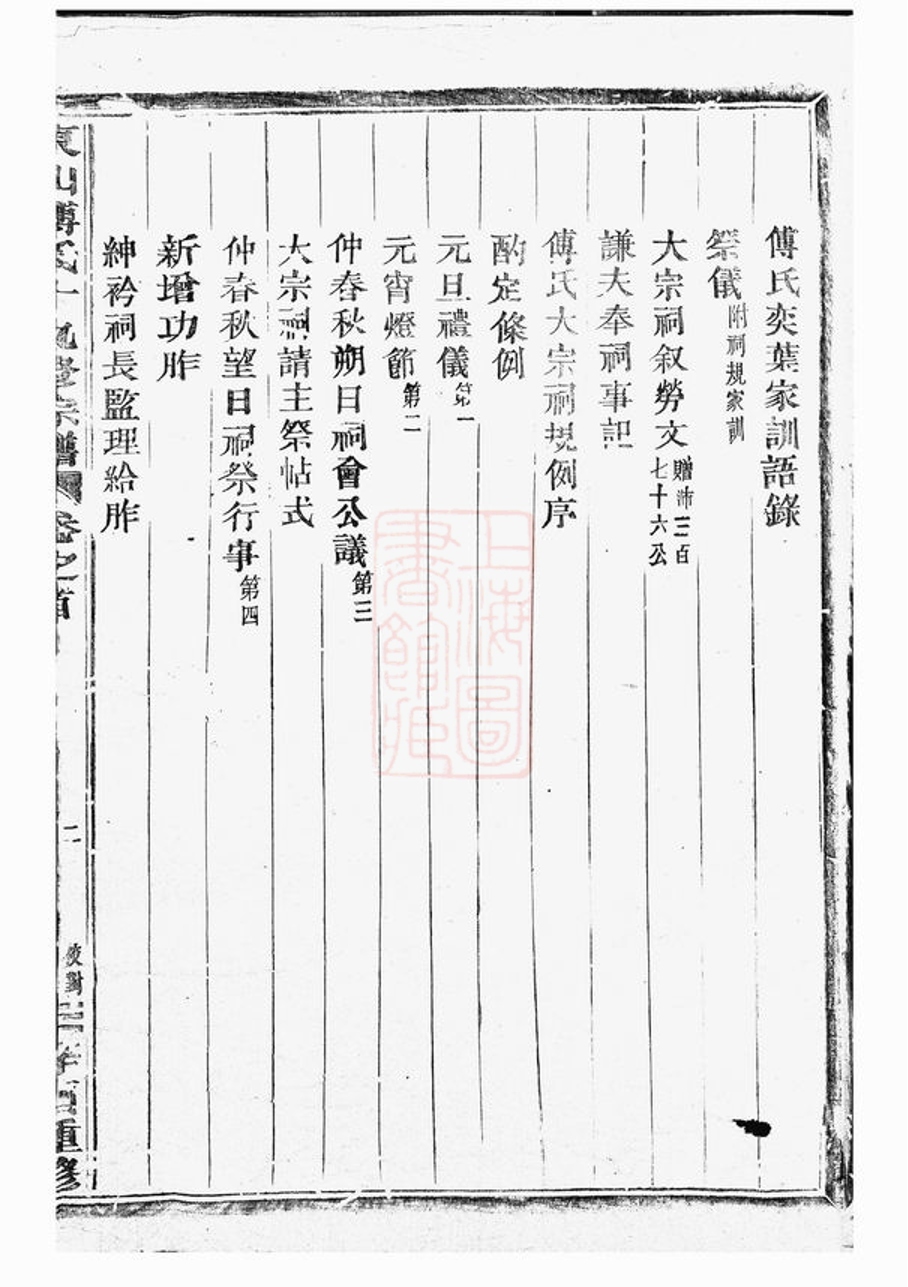 傅氏奕葉家訓語錄
祭儀附祠規家訓
大宗祠敘勞文贈沛三百七十六公
謙夫奉祠事記
傅氏大宗祠規例序
酌定條例
元旦禮儀第一
元宵燈節第二
仲春秋朔日祠會公議第三
大宗祠請主祭帖式
仲春秋望日祠祭行事第四
新增功胙
紳衿祠長監理給胙
東山傅氏十九修宗譜 卷之首 二 校對 重修
上海圖書館藏